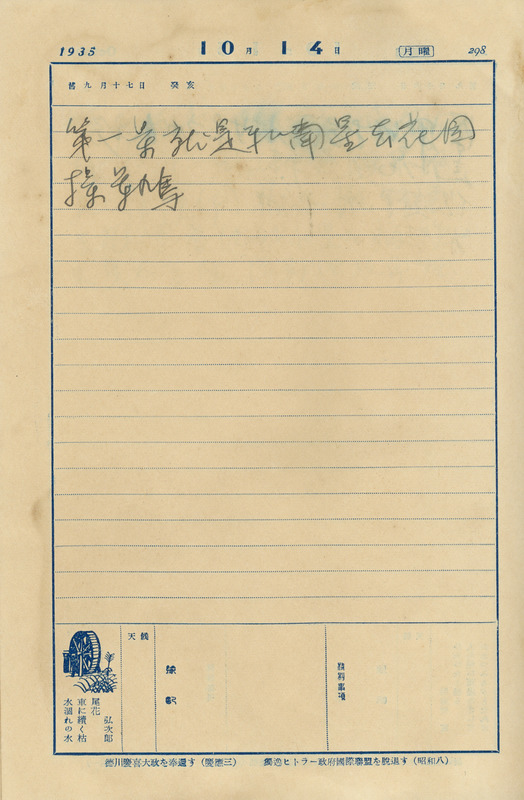 1935 10月14日 月曜 298
舊九月十七日 癸亥
第一景就是私南星去花園
採草
天候
豫記
弘次郎
尾花
車に續く枯
水涸れの水
德川慶喜大政を奉還す（慶應三） 獨逸ヒトラー政府國際聯盟を脫退す（昭和八）